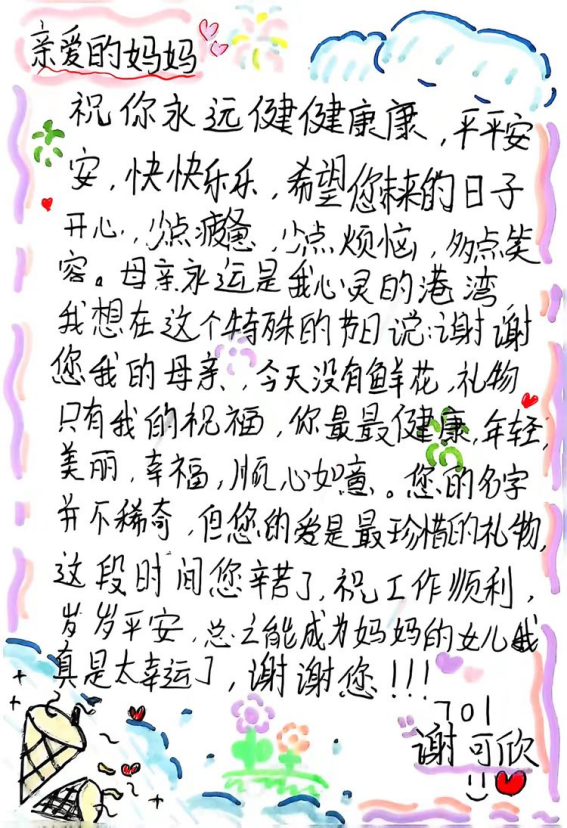 亲爱的妈妈
祝你永远健健康康，平平安
安，快快乐乐，希望您未来的日子
开心，少点疲惫，少点烦恼，多点笑
容。母亲永远是我心灵的港湾，
我想在这个特殊的节日说：谢谢
您我的母亲，今天没有鲜花，礼物
只有我的祝福，你最最健康，年轻，
美丽，幸福，顺心如意。您的名字
并不稀奇，但您的爱是最珍惜的礼物，
这段时间您辛苦了，祝工作顺利，
岁岁平安，总之能成为妈妈的女儿我
真是太幸运了，谢谢您！！！
701
谢可欣